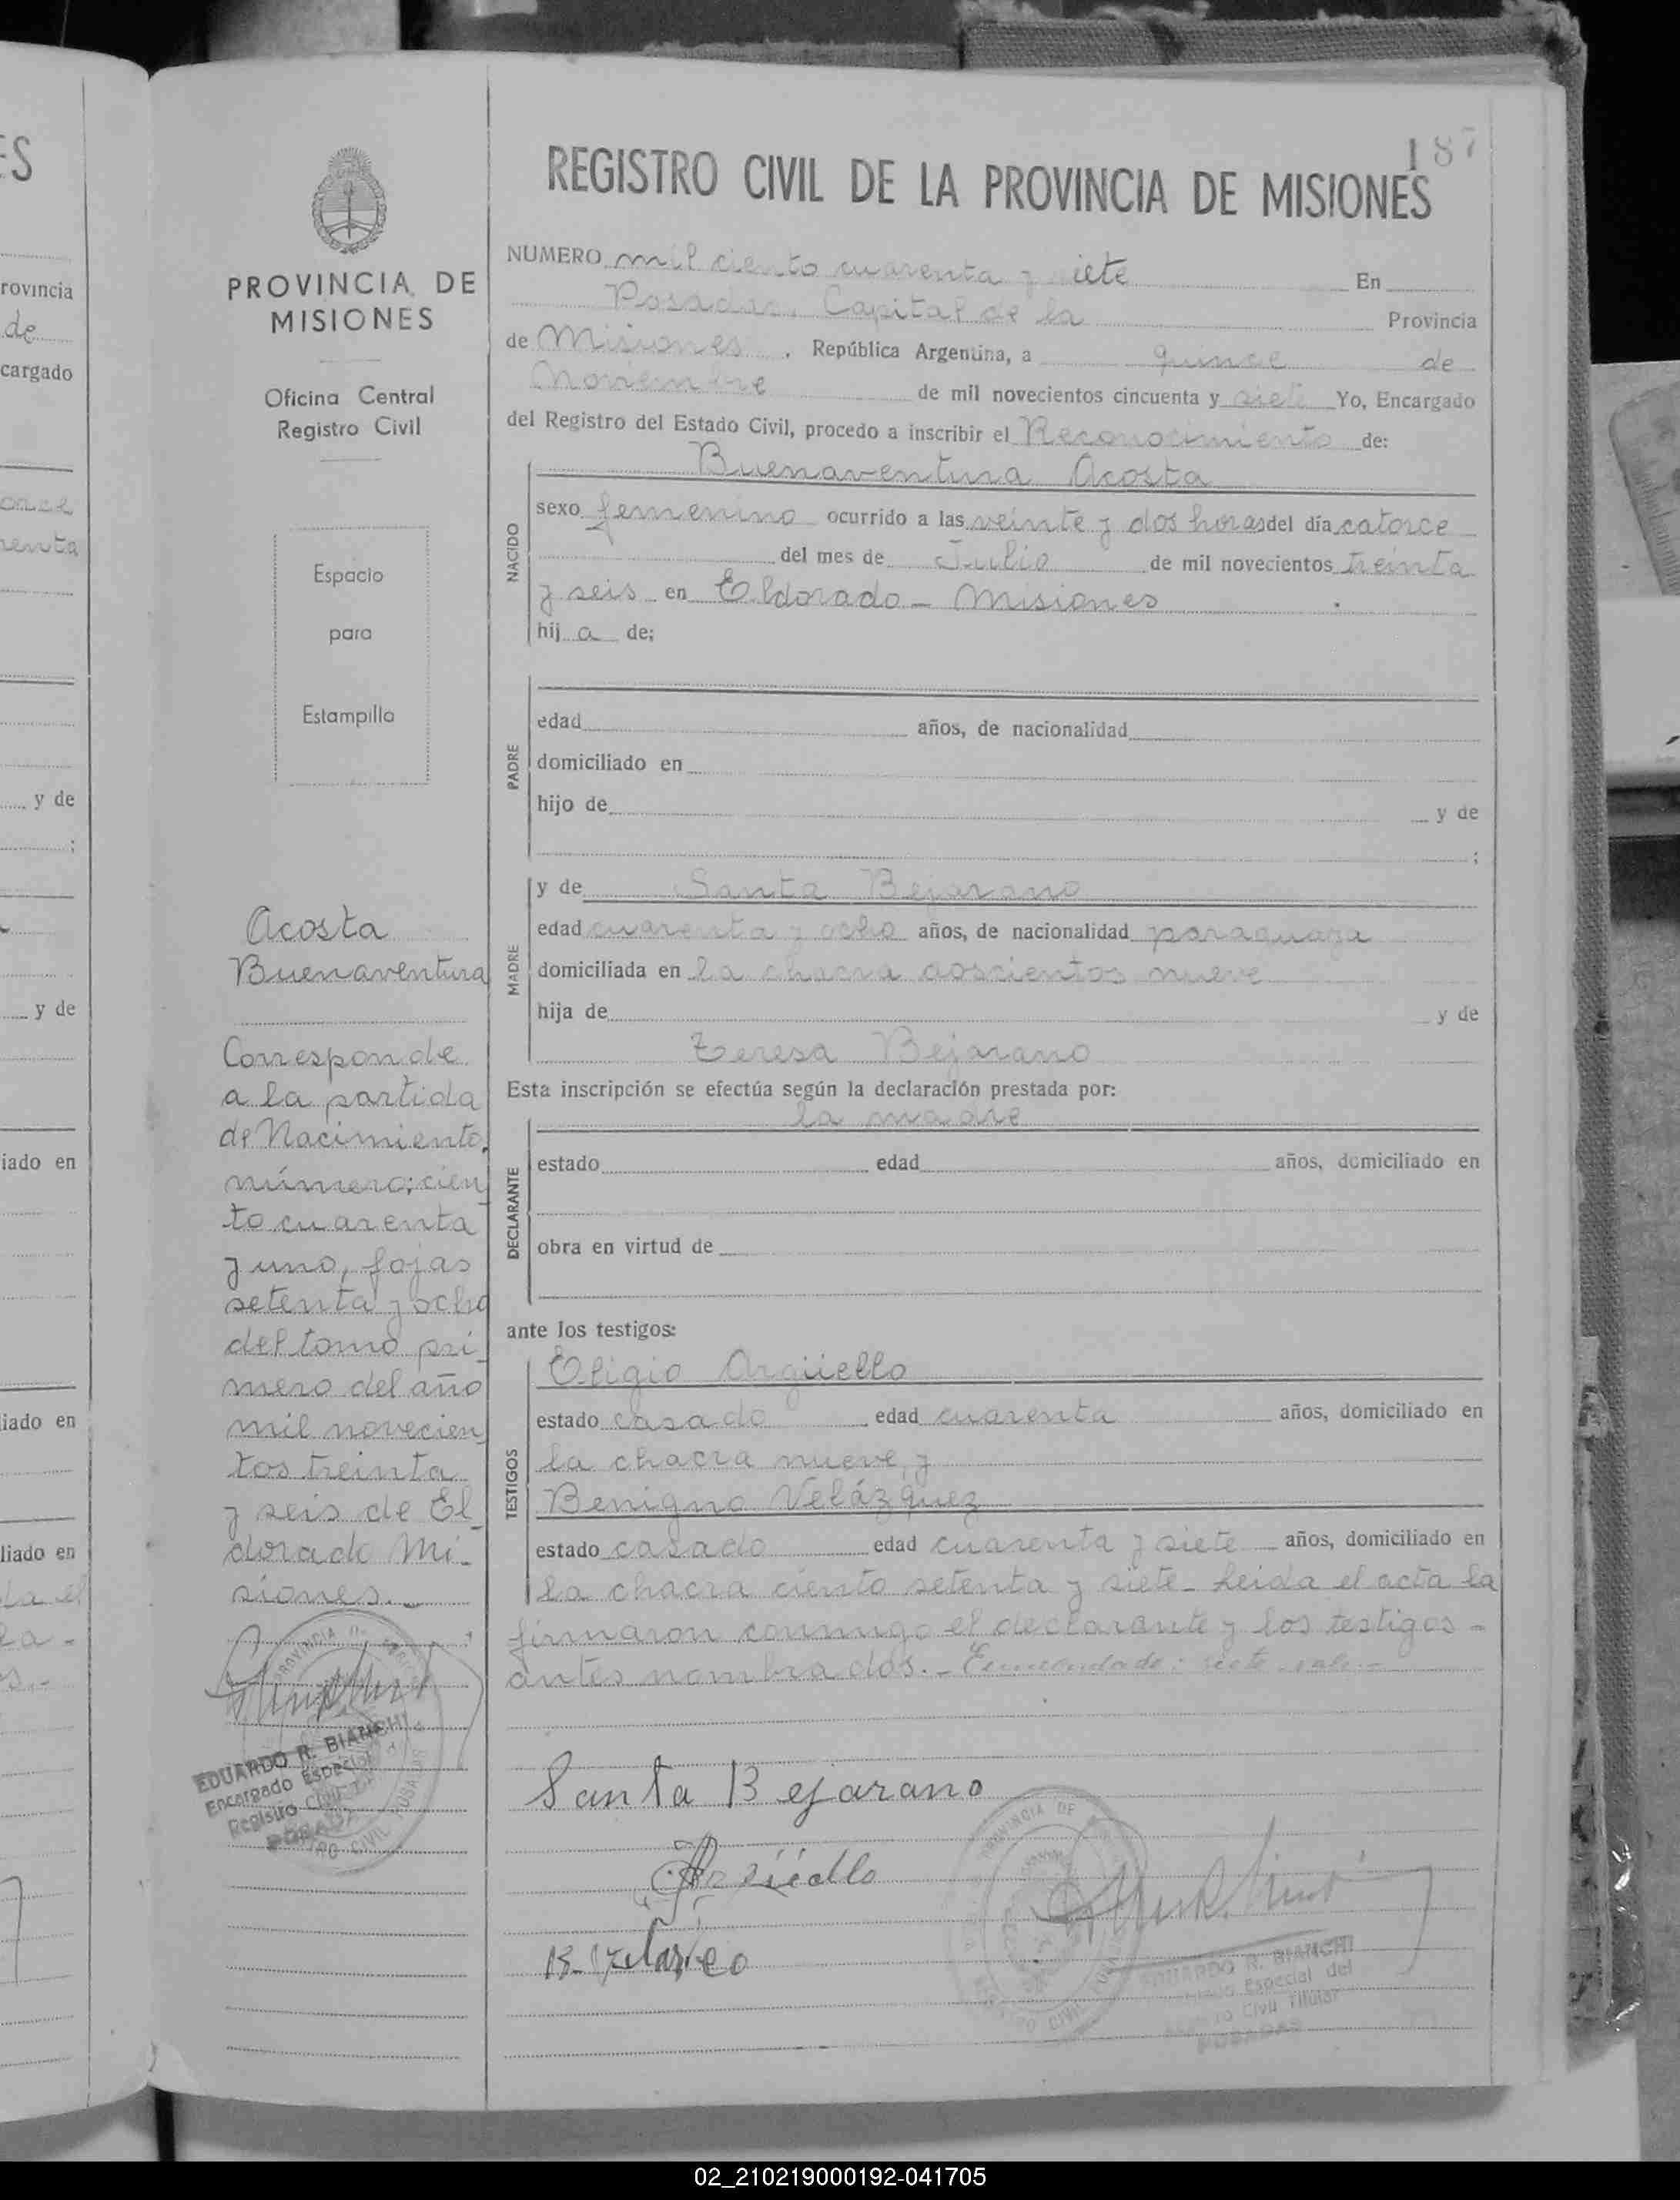 187
REGISTRO CIVIL DE LA PROVINCIA DE MISIONES
NUMERO mil ciento cuarenta y siete En
Posadas, Capital de la Provincia
de Misiones, República Argentina, a quince de
Noviembre de mil novecientos cincuenta y siete Yo, Encargado
del Registro del Estado Civil, procedo a inscribir el Reconocimiento de:
NACIDO
Buenaventura Acosta
sexo femenino ocurrido a las veinte y dos horas del día catorce
del mes de Julio de mil novecientos treinta
y seis en Eldorado - Misiones
hij a de;
PADRE
edad años, de nacionalidad
domiciliado en
hijo de y de
;
MADRE
y de Santa Bejarano
edad cuarenta y ocho años, de nacionalidad paraguaya
domiciliada en la chacra doscientos nueve
hija de y de
Teresa Bejarano
Esta inscripción se efectúa según la declaración prestada por:
la madre
DECLARANTE
estado edad años, domiciliado en
obra en virtud de
ante los testigos:
TESTIGOS
Eligio Argüello
estado casado edad cuarenta años, domiciliado en
la chacra nueve, y
Benigno Velázquez
estado casado edad cuarenta y siete años, domiciliado en
la chacra ciento setenta y siete - Leida el acta la
firmaron conmigo el declarante y los testigos -
antes nombrados. - Enmendado: siete vale. -
Santa Bejarano
EDUARDO R. BIANCHI
Especial del
Civil Titular
POSADAS
PROVINCIA DE
MISIONES
Oficina Central
Registro Civil
Espacio
para
Estampilla
Acosta
Buenaventura
Corresponde
a la partida
de Nacimiento,
número: cien
to cuarenta
y uno, fojas
setenta y ocho
del tomo pri_
mero del año
mil novecien
tos treinta
y seis de El_
dorado Mi_
siones. -
EDUARDO R. BIANCHI
Encargado Especial
Registro Civil
POSADAS
ES
rovincia
de
cargado
once
renta
y de
;
y de
iado en
liado en
liado en
02_210219000192-041705